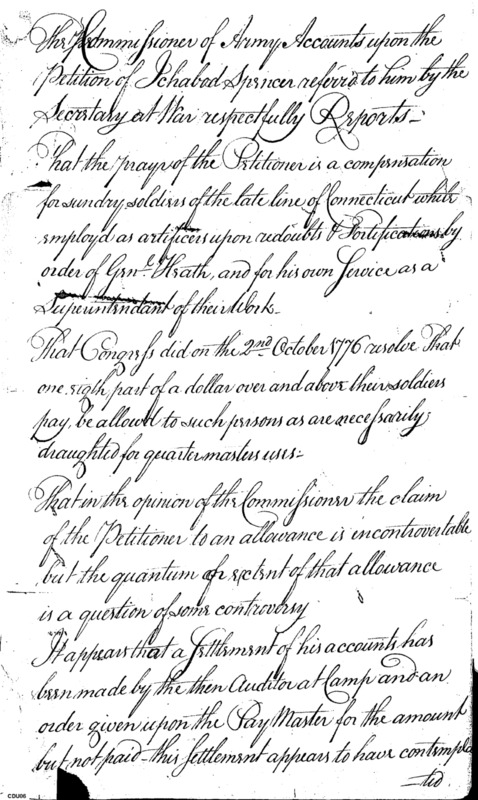 The Commissioner of Army Accounts upon the
Petition of Ichabod Spencer referr'd to him by the
Secretary at War respectfully Reports—
That the prayr of the Petitioner is a compensation
for sundry soldiers of the late line of Connecticut while
employd as artificers upon redoubts & Fortifications by
order of Genl. Heath, and for his own Service as a
Superintendant of their Work.
That Congress did on the 2nd October 1776 resolve That
one sixth part of a dollar over and above their soldiers
pay, be allowd to such persons as are necessarily
draughted for quarter masters uses:—
That in the opinion of the Commissioner the claim
of the Petitioner to an allowance is incontrovertable
but the quantum or extent of that allowance
is a question of some controversy
It appears that a Settlement of his accounts has
been made by the then Auditor at Camp and an
order given upon the Pay Master for the amount
but not paid—this settlement appears to have contempla
—ted
CDU06